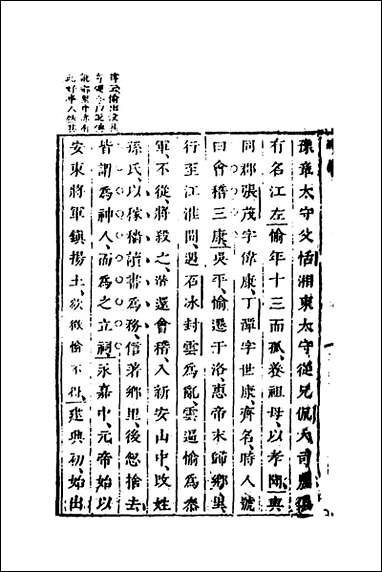 豫章太守父恬湘東太守從兄侃大司農
有名江左愉年十三而孤養祖母以孝聞與
同郡張茂字偉康丁潭字世康齊名時人號
曰會稽三康吳平愉遷于洛惠帝末歸鄉里
行至江淮間遇石冰封雲為亂雲逼愉為參
軍不從將殺之潛還會稽入新安山中改姓
孫氏以稼穡讀書為務信著鄉里後忽捨去
皆謂為神人而為之立祠永嘉中元帝始以
安東將軍鎮揚土欲徵愉不得建興初始出